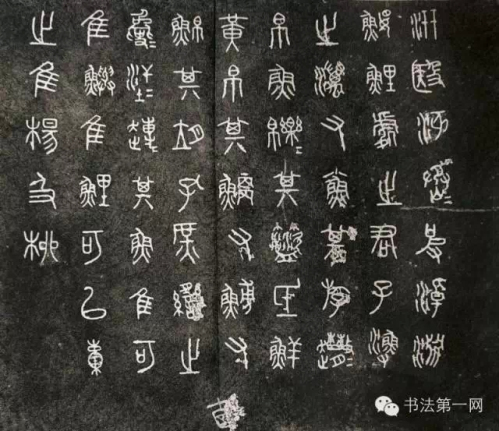 汧殹沔丞皮淖淵
鰋鯉處之君子漁
之澫又小魚其斿趣
帛魚皪其盜氐鮮
黃帛其鯿又鰟又
鮊其胡孔庶臠之
夐汗趩其魚隹可
隹鱮隹鯉可以橐
之隹楊及柳
书法第一网